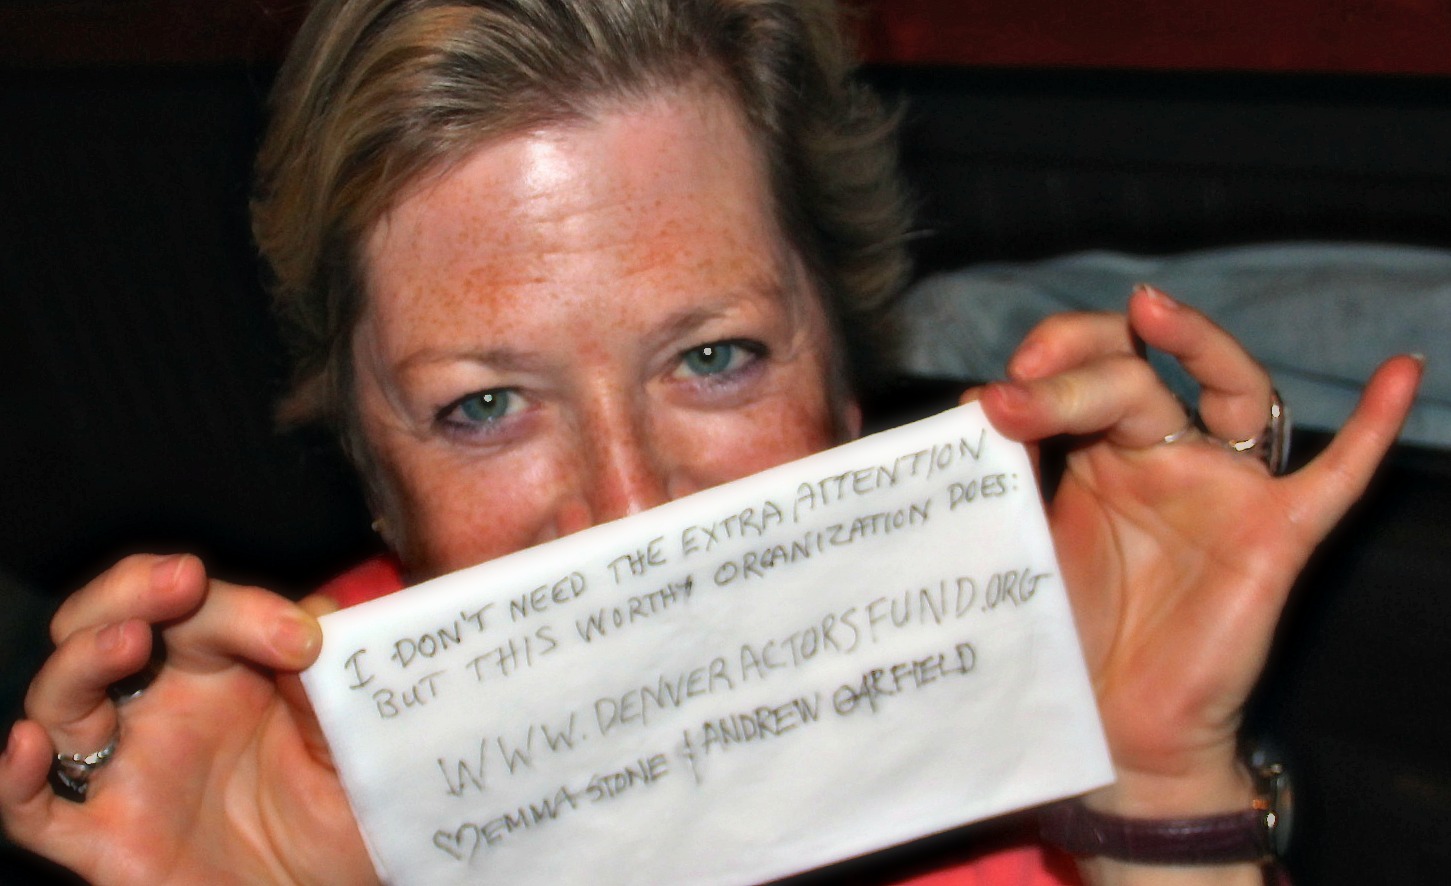 I DON'T NEED THE EXTRA ATTENTION
BUT THIS WORTHY ORGANIZATION DOES:
WWW.DENVERACTORSFUND.ORG
♡EMMA STONE & ANDREW GARFIELD